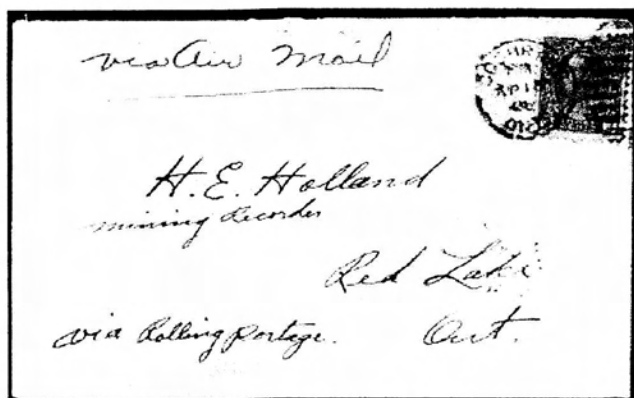 via Air Mail
H. E. Holland
mining Recorder
Red Lake
via Rolling Portage.
Ont.